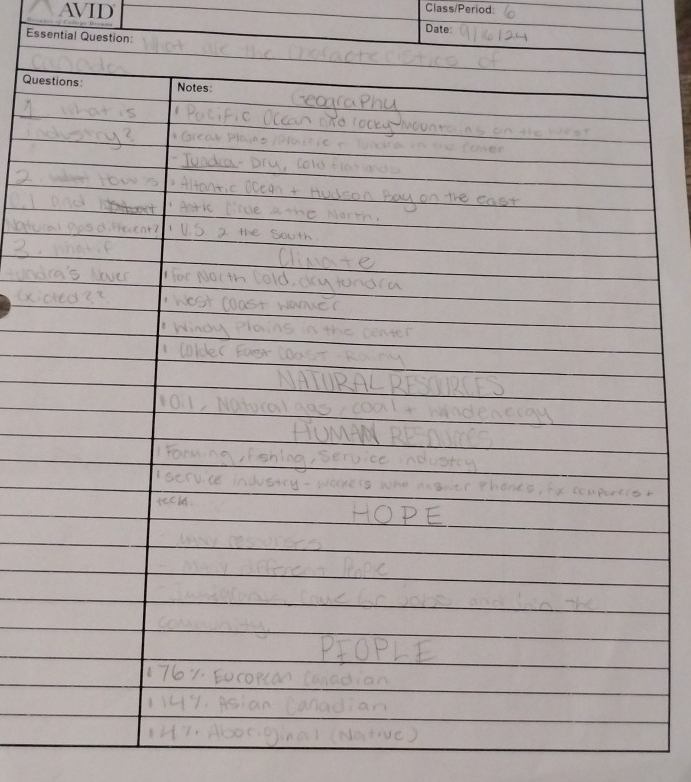 AVID
Class/Period: 6
Date: 9/16/24
Essential Question: What are the characteristics of
Canada
Questions:
Notes:
Geography
1. what is
• Pacific Ocean and rocky mountains on the west
industry?
• Great plains in the center
- Tundra - Dry, cold
2. How is
• Altantic Ocean + Hudson Bay on the east
Oil and
• Artic Circle 2 the North.
Natural gas different?
• U.S 2 the south.
3. what if
Climate
tundra's never
• Far North cold, dry tundra
exicted??
• West coast warmer
• Windy Plains in the center
• Colder East Coast - Rainy
NATURAL RESOURCES
• Oil, Natural gas, coal + windenergy
HUMAN RESOURCES
• Farming, fishing, service industry
• service industry - workers who answer phones, fix computers +
tech.
HOPE
- Many resourses
- Many different People
- Immigrants come for jobs and the
community
PEOPLE
• 76%. European Canadian
• 14%. Asian Canadian
• 4%. Aboriginal (Native)